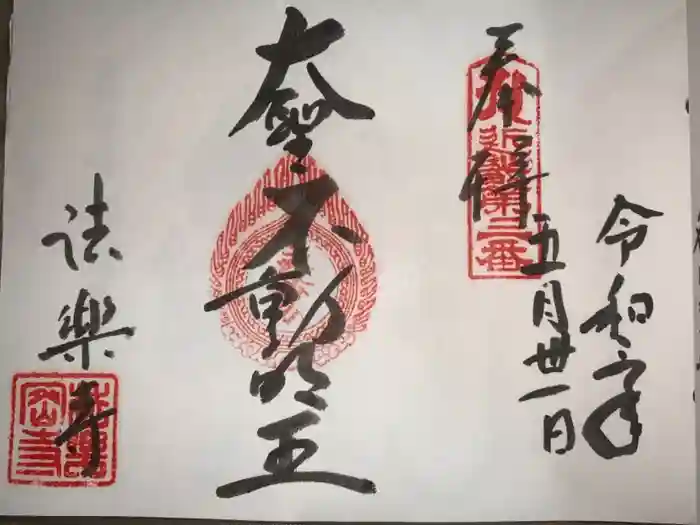 令和年
五月卅一日
奉拝
近畿第三番
大聖不動明王
法樂寺